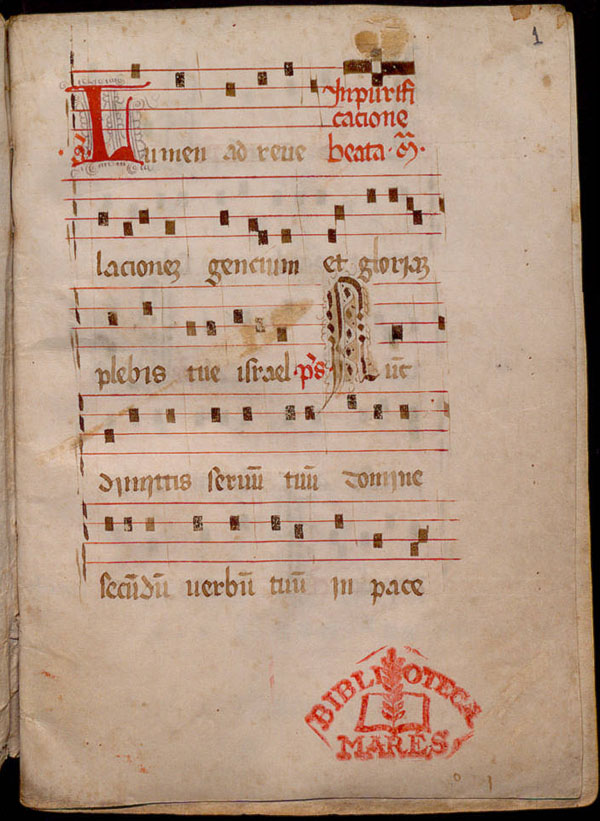 1
In purifi
cacione
Lumen ad reve beata M̃.
lacionez gencium et gloriaz
plebis tue israel p̃s Nũc
dimittis servũ tuũ domine
secũdũ verbũ tuũ in pace
BIBLIOTECA
MARES